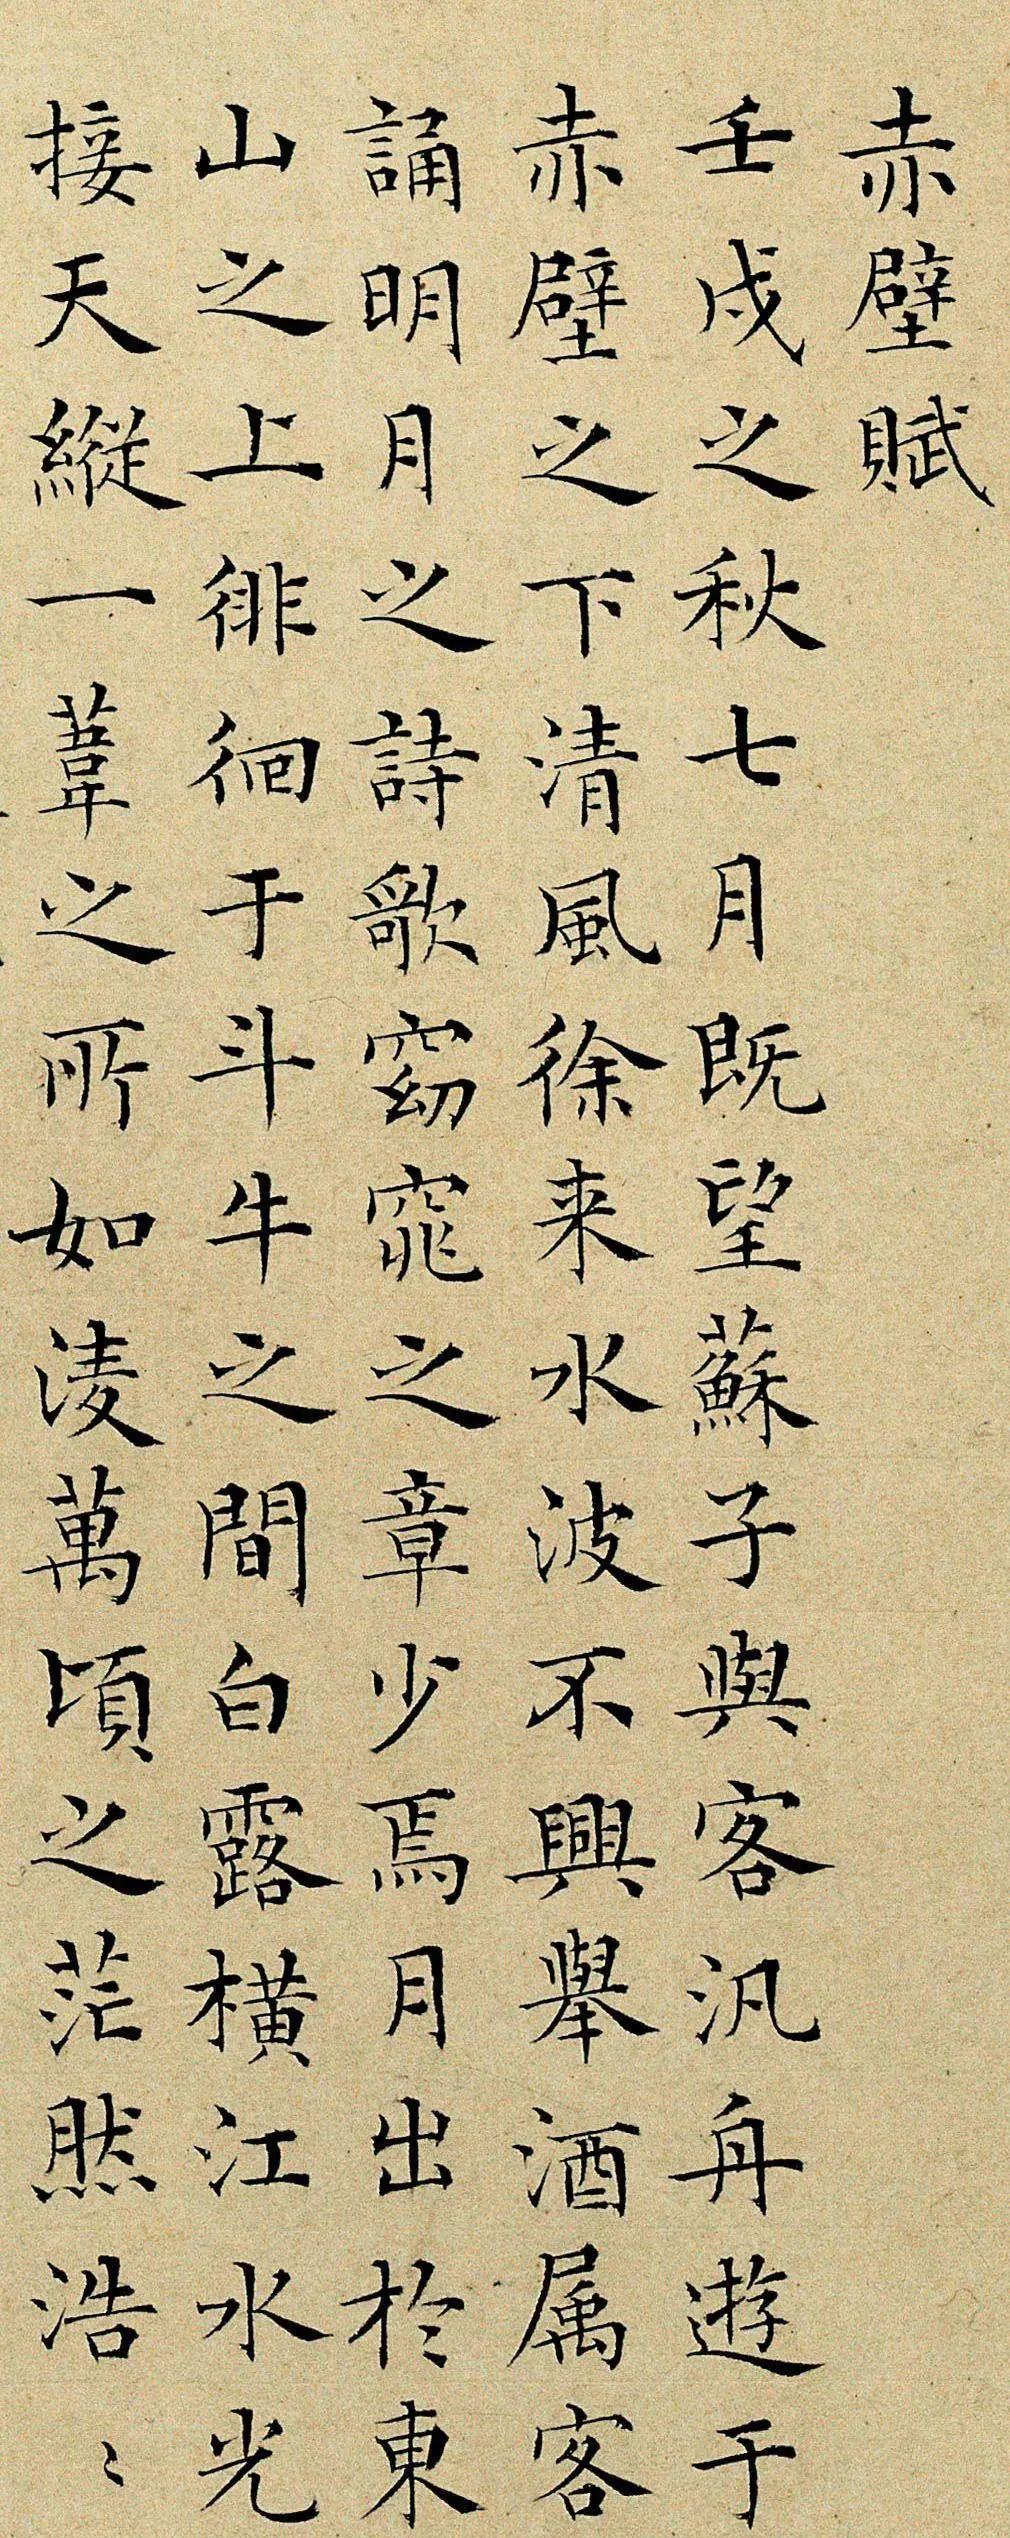 赤壁賦
壬戌之秋七月既望蘇子與客汎舟遊于
赤壁之下清風徐来水波不興舉酒属客
誦明月之詩歌窈窕之章少焉月出於東
山之上徘徊于斗牛之間白露橫江水光
接天縱一葦之所如淩萬頃之茫然浩〻